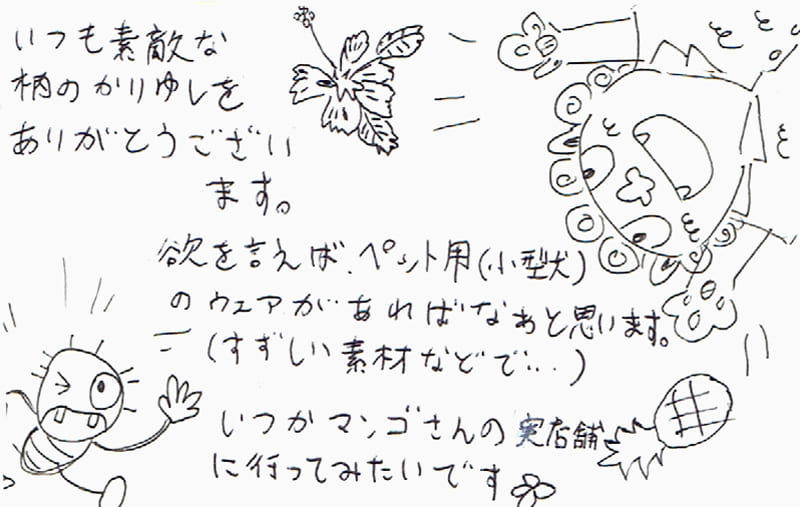 いつも素敵な
柄のかりゆしを
ありがとうござい
ます。
欲を言えば、ペット用(小型犬)
のウェアがあればなぁと思います。
(すずしい素材などで…)
いつかマンゴさんの実店舗
に行ってみたいです